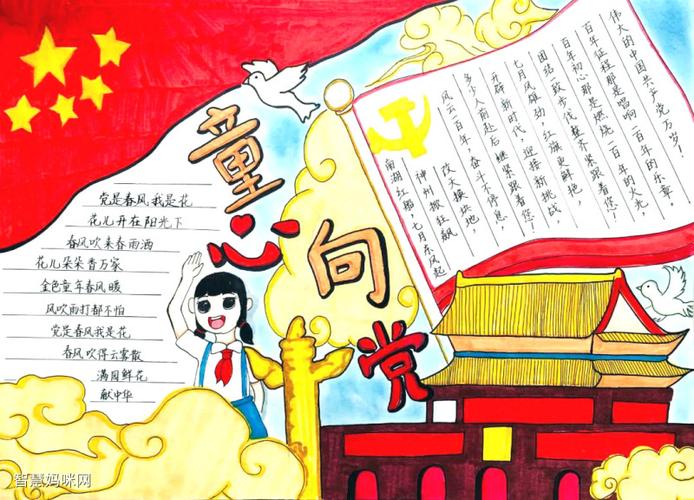 童心向党
党是春风我是花
花儿开在阳光下
春风吹来春雨洒
花儿朵朵香万家
金色童年春风暖
风吹雨打都不怕
党是春风我是花
春风吹得云雾散
满园鲜花
献中华
南湖红船,七月东风起
神州掀狂飙
改天换块地,
风云一百年,奋斗不停息,
多少人前赴后继紧跟着您!
开辟新时代,迎接新挑战,
七月风雄劲,红旗更鲜艳,
团结一致步伐整齐紧跟着您!
百年初心那是燃烧一百年的火光,
百年征程那是唱响一百年的乐章
伟大的中国共产党万岁!
智慧妈咪网